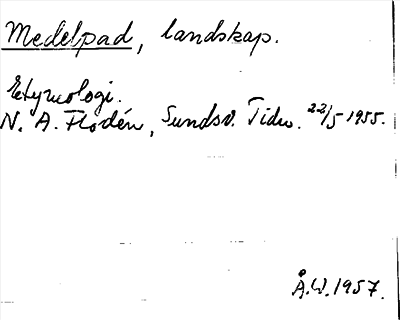 Medelpad, landskap.
Etymologi.
N. A. Flodén, Sundsv. Tidn. 22/5 1955.
Å.W. 1957.